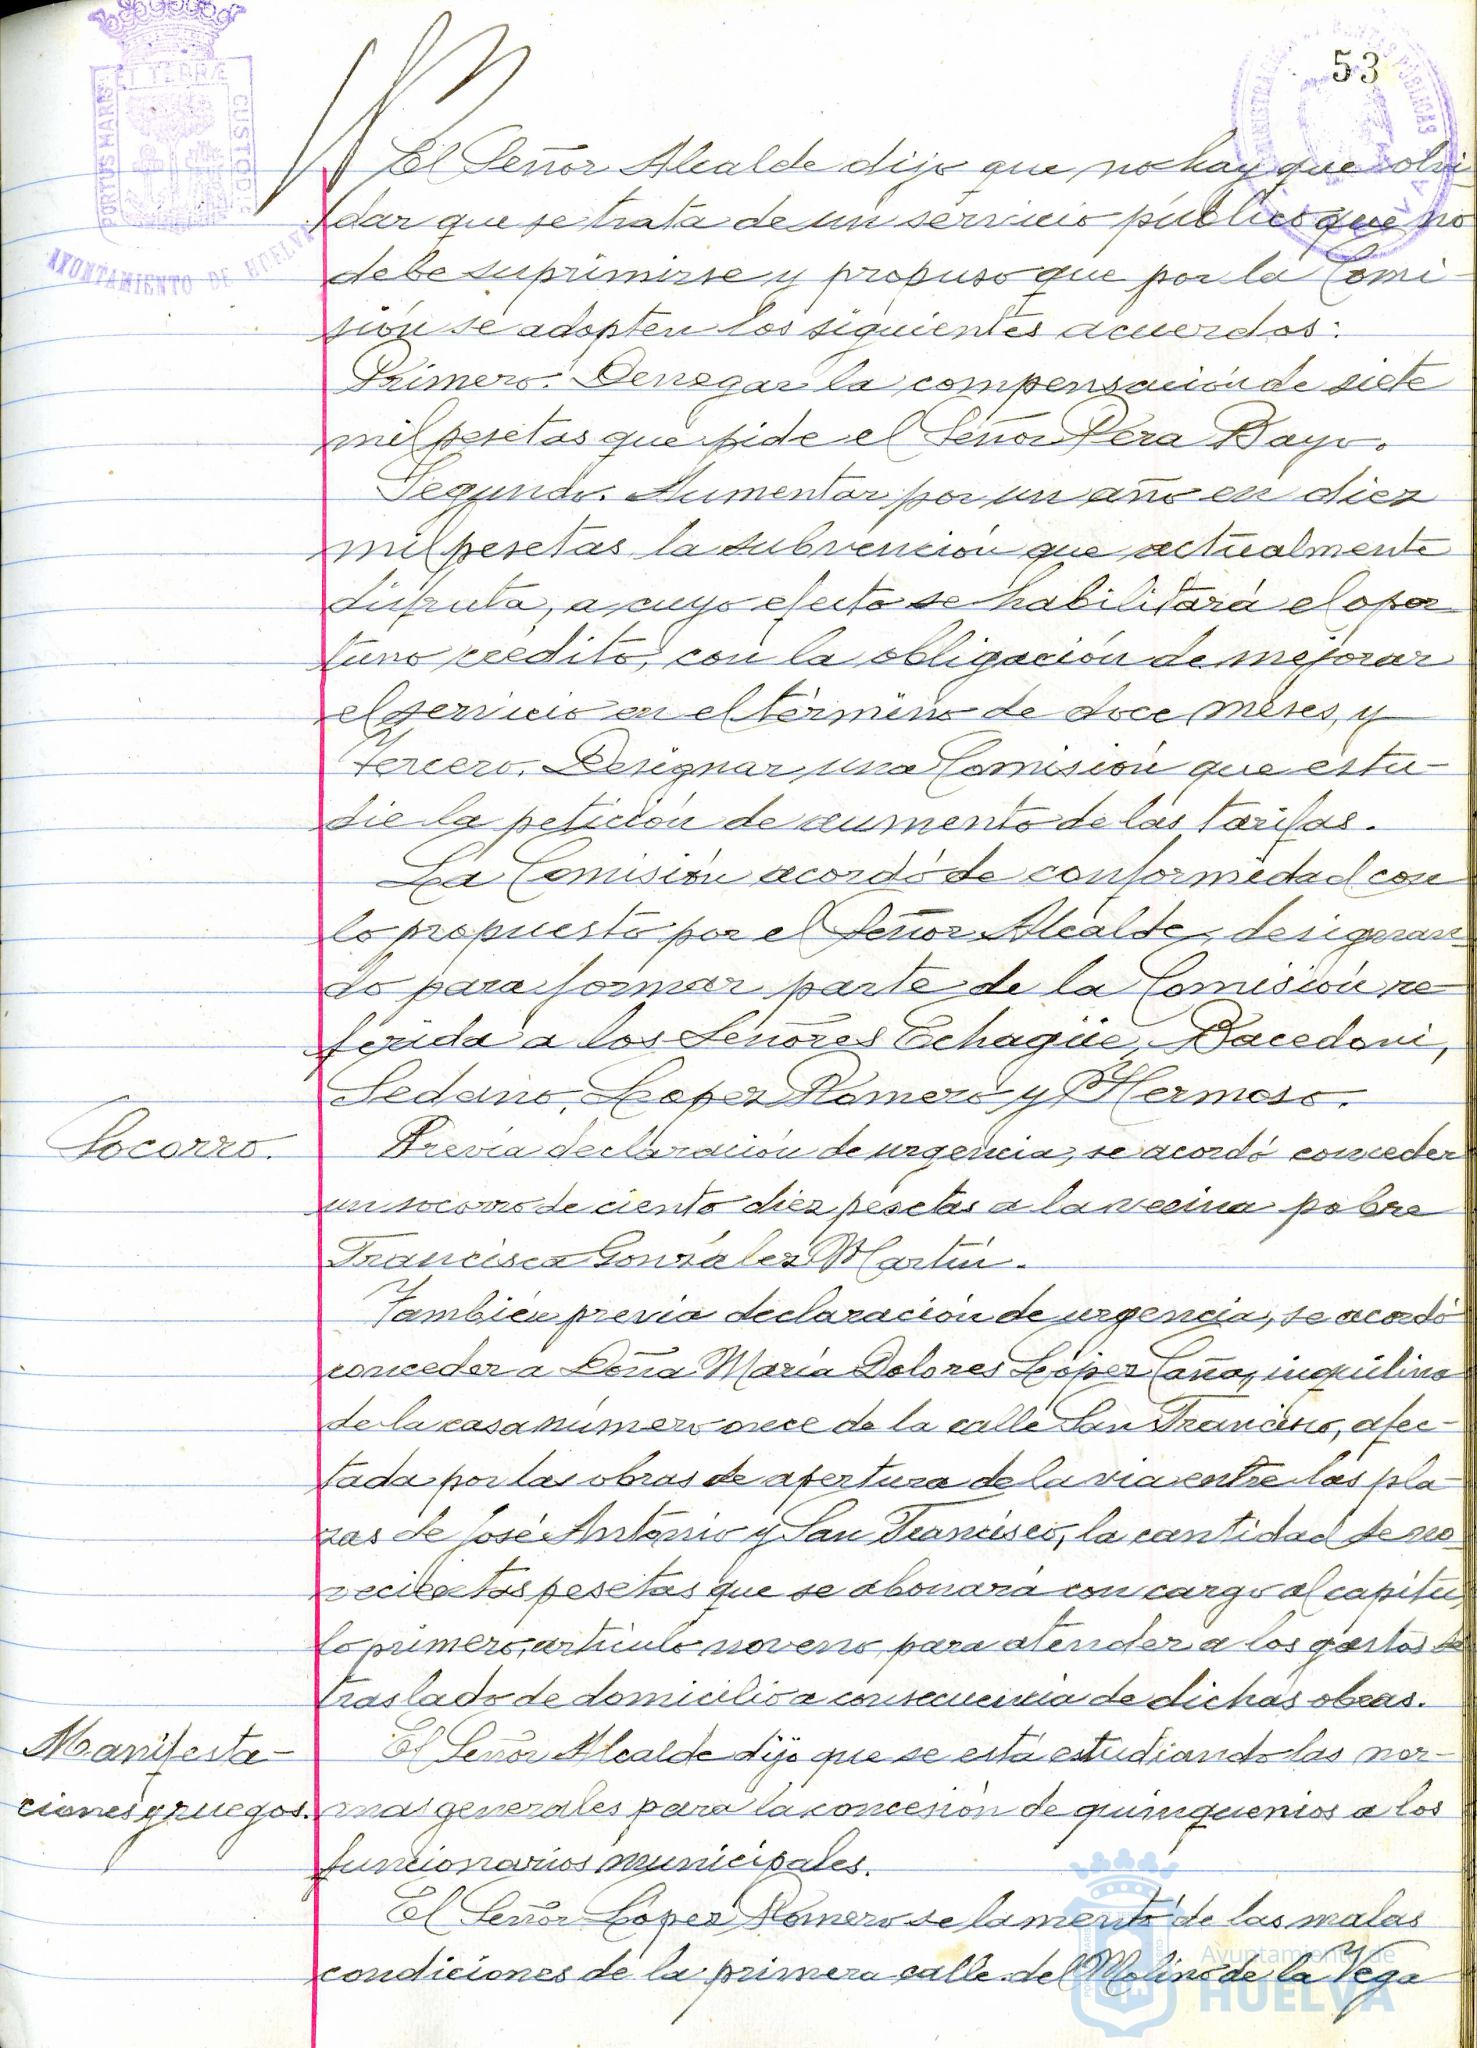 53
PORTUS MARIS ET TERRÆ CUSTODIA
AYUNTAMIENTO DE HUELVA
ADMINISTRACION DE RENTAS PUBLICAS
HUELVA
El Señor Alcalde dijo que no hay que olvi-
dar que se trata de un servicio público que no
debe suprimirse y propuso que por la Comi-
sión se adopten los siguientes acuerdos:
Primero. Denegar la compensación de siete
mil pesetas que pide el Señor Pera Bayo.
Segundo. Aumentar por un año en diez
mil pesetas la subvención que actualmente
disfruta, a cuyo efecto se habilitará el opor
tuno crédito, con la obligación de mejorar
el servicio en el término de doce meses, y
Tercero. Designar una Comisión que estu-
die la petición de aumento de las tarifas.
La Comisión acordó de conformidad con
lo propuesto por el Señor Alcalde, designan-
do para formar parte de la Comisión re-
ferida a los Señores Echagüe, Bacedoni,
Sedano, Lopez Romero y Hermoso.
Socorro.
Previa declaración de urgencia, se acordó conceder
un socorro de ciento diez pesetas a la vecina pobre
Francisca González Martín.
También previa declaración de urgencia, se acordó
conceder a Doña María Dolores López Caña, inquilina
de la casa número once de la calle San Francisco, afec-
tada por las obras de apertura de la via entre las pla-
zas de José Antonio y San Francisco, la cantidad de no-
vecientas pesetas que se abonará con cargo al capítu-
lo primero, artículo noveno, para atender a los gastos de
traslado de domicilio a consecuencia de dichas obras.
Manifesta-
ciones y ruegos.
El Señor Alcalde dijo que se está estudiando las nor-
mas generales para la concesión de quinquenios a los
funcionarios municipales.
El Señor López Romero se lamentó de las malas
condiciones de la primera calle del Molino de la Vega
Ayuntamiento de
HUELVA